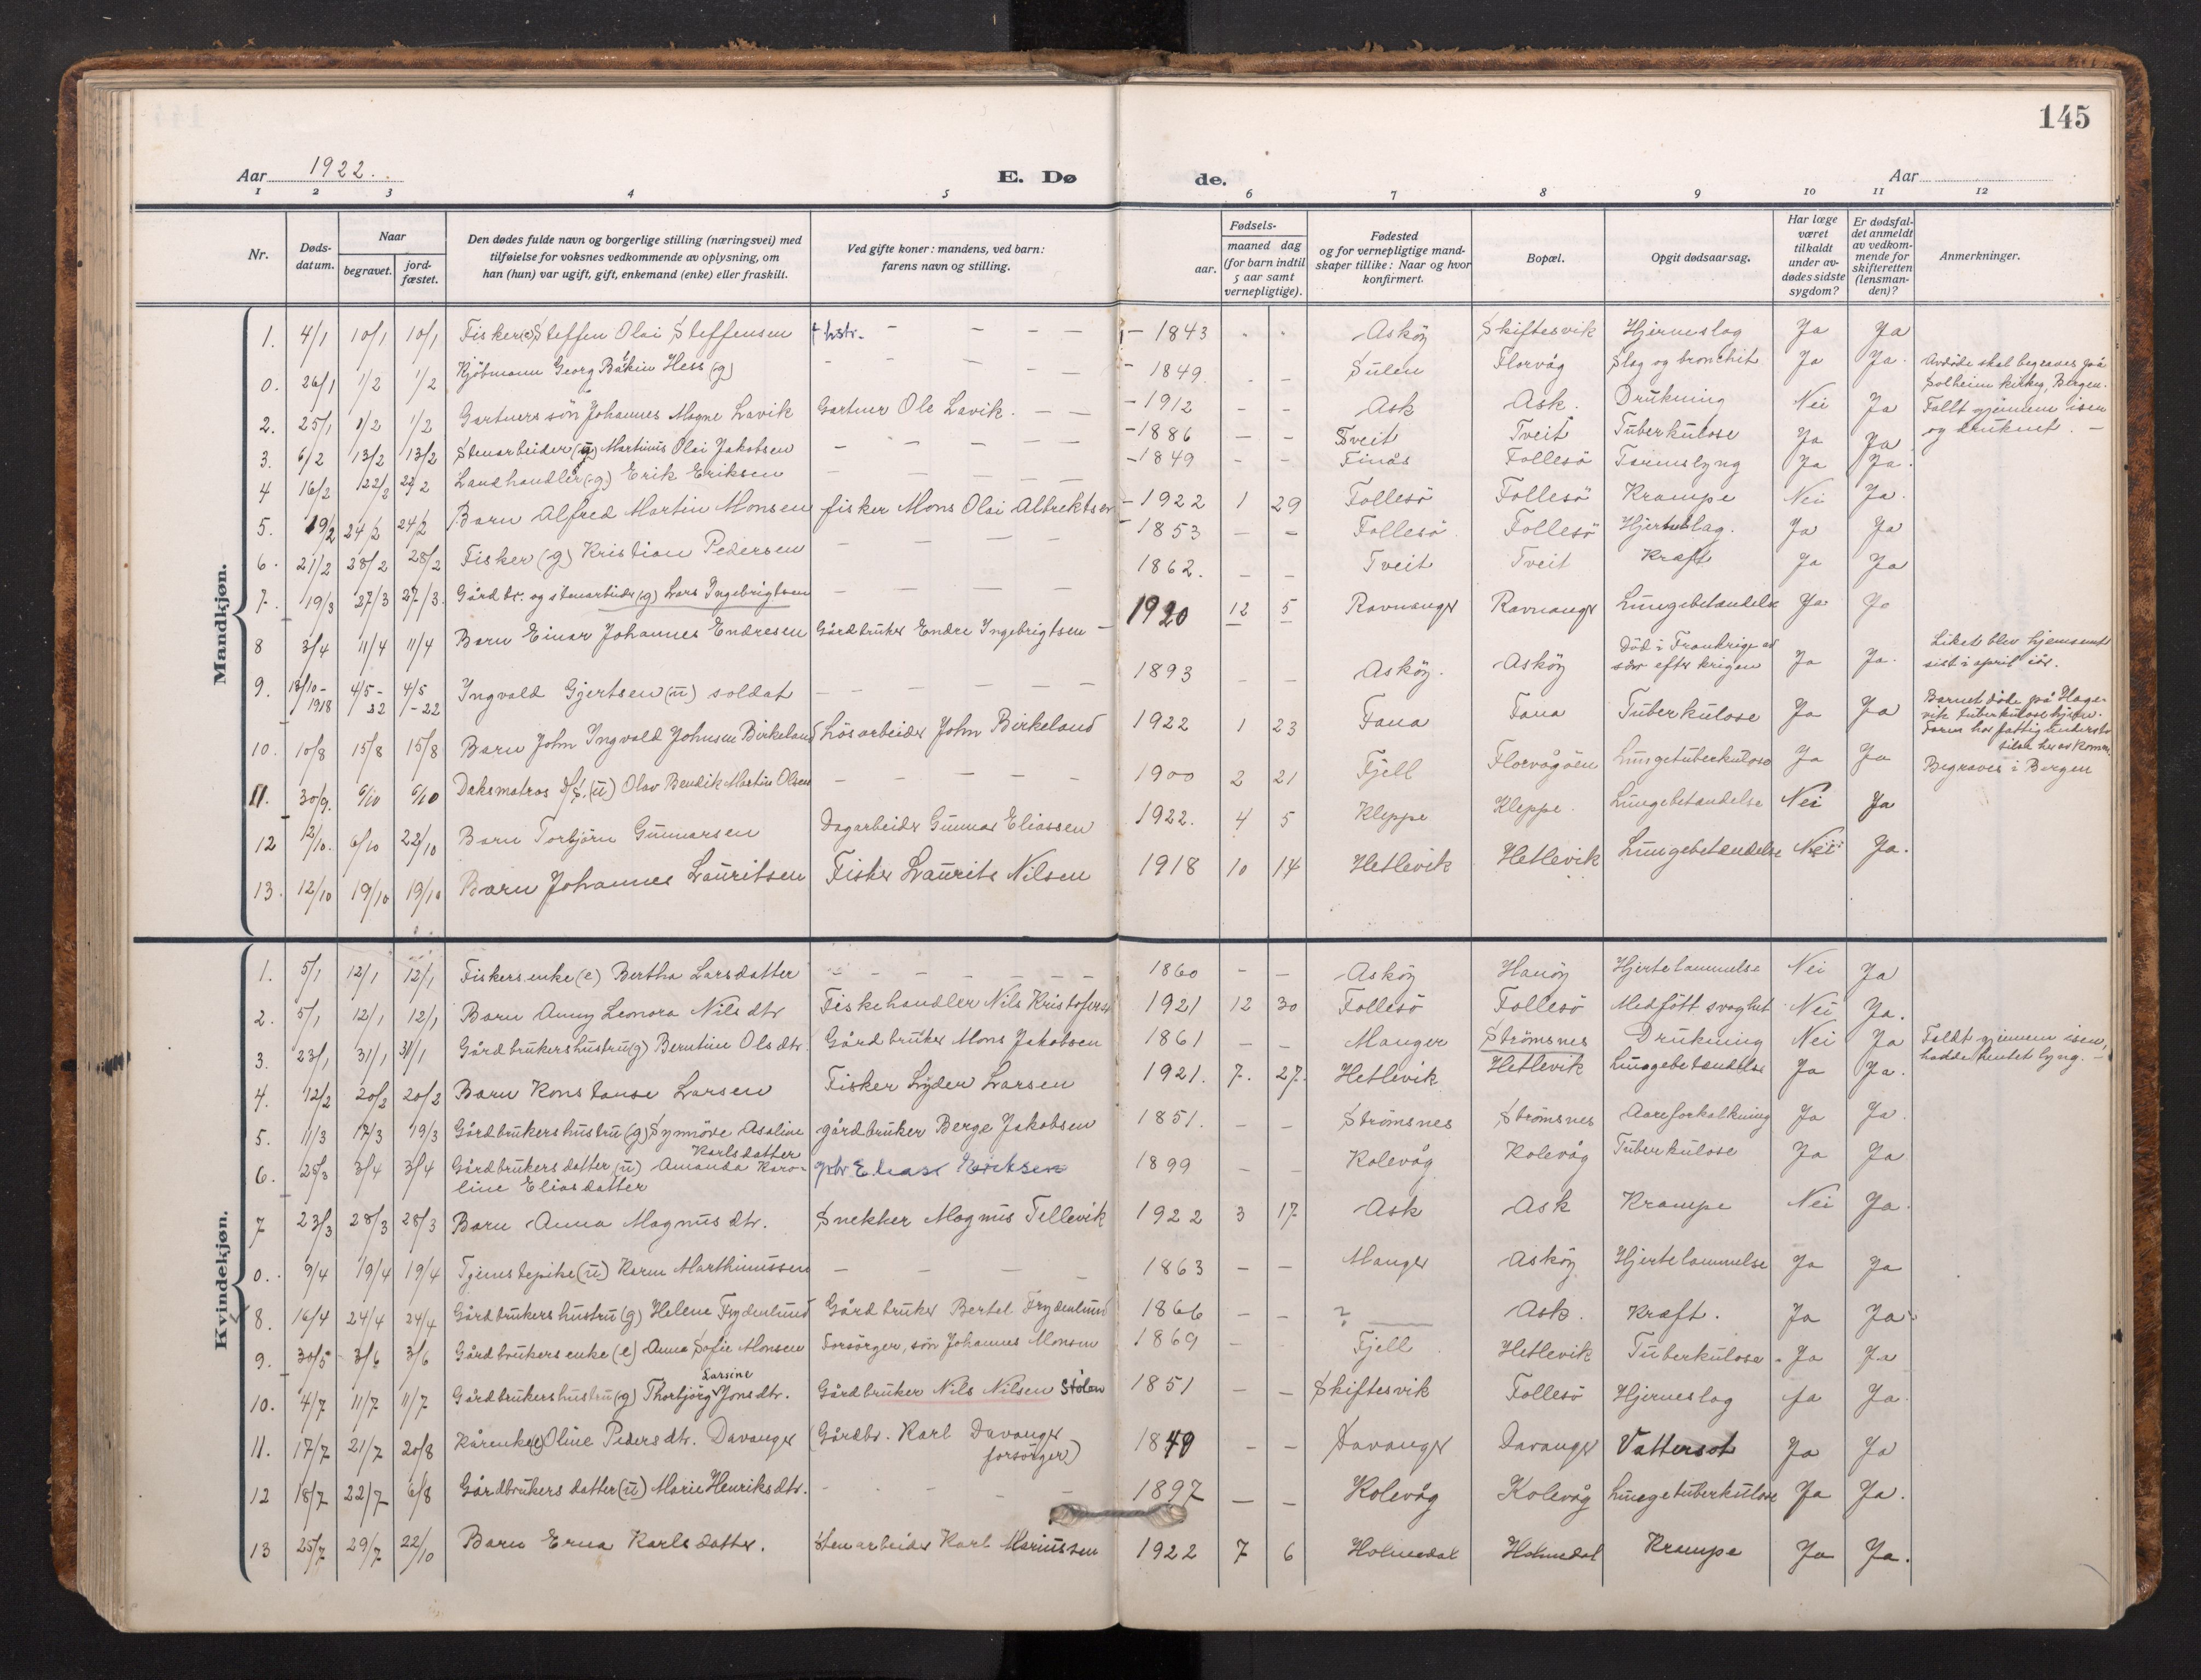 145
Aar 1922. E. Døde. Aar
1 2 3 4 5 6 7 8 9 10 11 12
Nr. Døds-datum. Naar begravet. jord-fæstet. Den dødes fulde navn og borgerlige stilling (næringsvei) med tilføielse for voksnes vedkommende av oplysning, om han (hun) var ugift, gift, enkemand (enke) eller fraskilt. Ved gifte koner: mandens, ved barn: farens navn og stilling. aar. Fødsels-maaned dag (for barn indtil 5 aar samt vernepligtige). Fødested og for vernepligtige mand-skaper tillike: Naar og hvor konfirmert. Bopæl. Opgit dødsaarsag. Har læge været tilkaldt under av-dødes sidste sygdom? Er dødsfal-det anmeldt av vedkom-mende for skifteretten (lensman-den)? Anmerkninger.
Mandkjøn.
1. 4/1 10/1 10/1 Fisker (e) Steffen Olai Steffensen – – – – 1843 Asköy Skiftesvik Hjerneslag Ja Ja
0. 26/1 1/2 1/2 Kjöbmann Georg Hess (g) – – – – 1849 – – Sulen Florvåg Slag og bronchit Ja Ja. Avdöde skal begraves på Solheim kirkeg, Bergen.
2. 25/1 1/2 1/2 Gartners sön Johannes Magne Lavik Gartner Ole Lavik. – – – 1912 – – Ask Ask. Drukning Nei Ja Fallt gjennem isen og druknet. –
3. 6/2 13/2 13/2 Stenarbeider (g) Martinus Olai Jakobsen – – – – – 1886 – – Tveit Tveit Tuberkulose Ja Ja
4 16/2 22/2 22/2 Landhandler (g) Erik Eriksen – – – – – 1849 – – Finås Follesö Tarmslyng Ja Ja.
5. 19/2 24/2 24/2 Barn Alfred Martin Monsen fisker Mons Olai Albrektsen – 1922 1 29 Follesö Follesö Krampe Nei Ja.
6. 21/2 28/2 28/2 Fisker (g) Kristian Pedersen – – – – – 1853 – – Follesö Follesö Hjerteslag. Ja Ja
7. 19/3 27/3 27/3. Gårdbr. og stenarbeider (g) Lars Ingebrigtsen – – – – 1862. – – Tveit Tveit Kræft Ja Ja
8 3/4 11/4 11/4 Barn Einar Johannes Endresen Gårdbruker Endre Ingebrigtsen – 1920 12 5 Ravnanger Ravnanger Lungebetændelse Ja Ja
9. 13/10-1918 4/5-22 4/5-22 Ingvald Gjertsen (u) soldat – – – – – 1893 – – Asköy. Asköy Död i Frankrige av sår efter krigen Ja Ja. Liket blev hjemsendt sist i april iår.
10. 10/8 15/8 15/8 Barn John Ingvald Johnsen Birkeland Lösarbeider John Birkeland 1922 1 23 Fana Fana Tuberkulose Ja Ja Barnet döde på Hagevik tuberkulosehjem. Faren har fattigunderstöttelse her av komm.
11. 30/9. 6/10 6/10 Dæksmatros (u) Olav Bendik Martin Olsen – – – – – 1900 2 21 Fjell Florvågöen Lungetuberkulose Ja Ja Begraves i Bergen
12 2/10. 6/10 22/10 Barn Torbjörn Gunnarsen Dagarbeider Gunnar Eliassen 1922. 4 5 Kleppe Kleppe. Lungebetændelse Nei Ja
13. 12/10 19/10 19/10 Barn Johannes Lauritsen Fisker Laurits Nilsen 1918 10 14 Hetlevik Hetlevik Lungebetændelse Nei Ja.
Kvindekjøn.
1. 5/1 12/1 12/1 Fiskers enke (e) Bertha Larsdatter – – – – – 1860 – – Asköy Hanöy Hjertelammelse Nei Ja
2. 5/1 12/1 12/1 Barn Anny Leonora Nilsdtr Fiskehandler Nils Kristofers 1921 12 30 Follesö Follesö Medfött svaghet Nei Ja.
3. 23/1 31/1 31/1 Gårdbrukershustru (g) Berntine Olsdtr. Gårdbruker Mons Jakobsen 1861 – – Manger Strömsnes Drukning Nei Ja Faldt gjennem isen, hadde hentet lyng. –
4. 12/2 20/2 20/2 Barn Konstanse Larsen Fisker Lyder Larsen 1921. 7. 27. Hetlevik Hetlevik Lungebetændelse Ja Ja.
5. 11/3 17/3 19/3 Gårdbrukershustru (g) Synnöve Asaline Karlsdatter gårdbruker Berge Jakobsen 1851. – – Strömsnes Strömsnes Aareforkalkning Ja Ja.
6. 25/3 3/4 3/4 Gårdbrukers datter (u) Amanda Karoline Eliasdatter gbr Elias Eriksen 1899 – – Kolevåg Kolevåg Tuberkulose Ja Ja
7 23/3 28/3 28/3 Barn Anna Magnusdtr. Snekker Magnus Tellevik 1922 3 17 Ask Ask Krampe Nei Ja.
0. 9/4 19/4 19/4 Tjenestepike (u) Karen Marthinussen – – – – 1863 – – Manger Asköy Hjertelammelse Ja Ja
8. 16/4 24/4 24/4 Gårdbrukershustru (g) Helene Frydenlund Gårdbruker Bertel Frydenlund 1866 – – ? Ask. Kræft. Ja Ja.
9. 30/5 3/6 3/6 Gårdbrukersenke (e) Anna Sofie Monsen Forsörger, sön Johannes Monsen 1869 – – Fjell Hetlevik Tuberkulose. Ja Ja
10. 4/7 11/7 11/7 Gårdbrukershustru (g) Thorbjörg Larsine Jonsdtr. Gårdbruker Nils Nilsen Stölen 1851 – – Skiftesvik Follesö Hjerneslag Ja Ja.
11. 17/7 21/7 20/8 Kårenke (e) Oline Pedersdtr. Davanger (Gårdbr. Karl Davanger forsörger) 1849 – – Davanger Davanger Vattersot Ja Ja
12 18/7 22/7 6/8 Gårdbrukers datter (u) Marie Henriksdtr. – – – – 1897 – – Kolevåg Kolevåg Lungetuberkulose Ja Ja.
13 25/7 29/7 22/10 Barn Erna Karlsdatter. Stenarbeider Karl Mariussen 1922 7 6 Holmedal Holmedal Krampe Ja Ja.